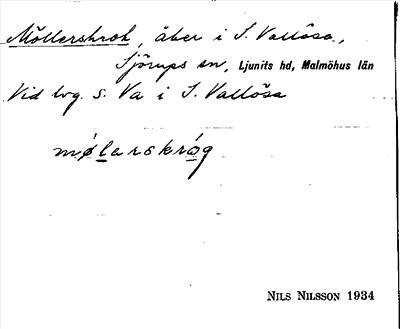 Möllerskrok, åker i S. Vallösa,
Sjörups sn, Ljunits hd, Malmöhus län
Vid lvg. S. Va i S. Vallösa
mø̀larskråg
NILS NILSSON 1934